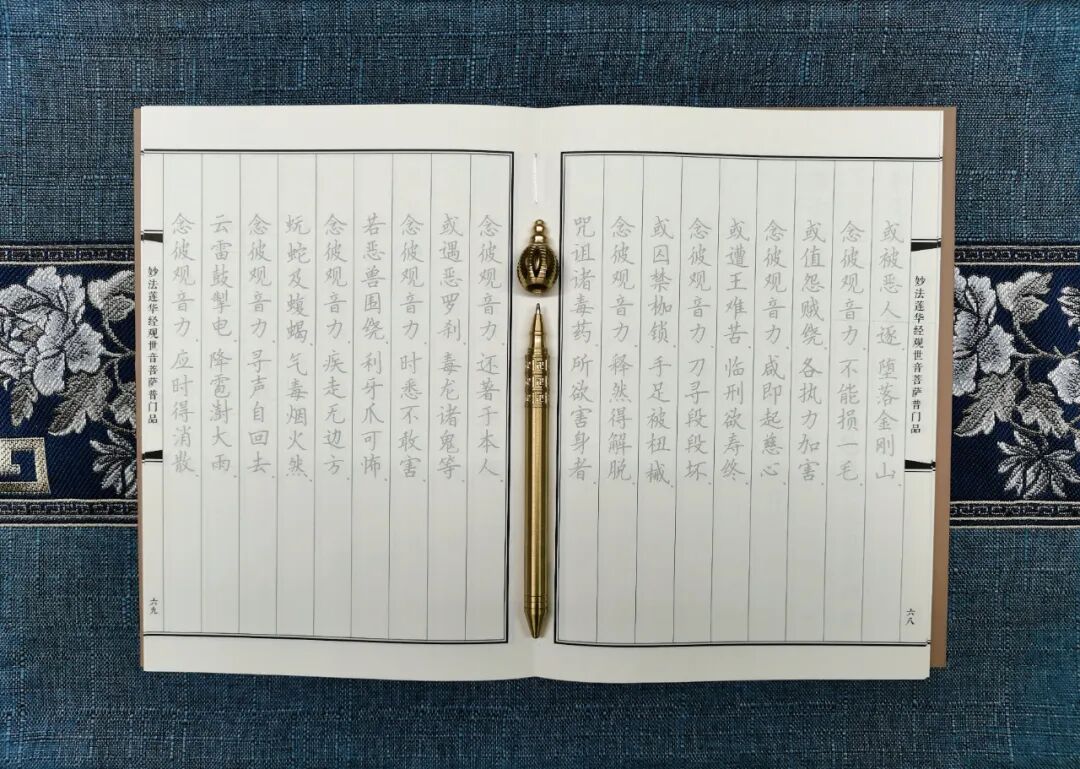 妙法莲华经观世音菩萨普门品
六八
或被恶人逐、堕落金刚山、
念彼观音力、不能损一毛、
或值怨贼绕、各执刀加害、
念彼观音力、咸即起慈心、
或遭王难苦、临刑欲寿终、
念彼观音力、刀寻段段坏、
或囚禁枷锁、手足被杻械、
念彼观音力、释然得解脱、
咒诅诸毒药、所欲害身者、
念彼观音力、还著于本人、
或遇恶罗刹、毒龙诸鬼等、
念彼观音力、时悉不敢害、
若恶兽围绕、利牙爪可怖、
念彼观音力、疾走无边方、
蚖蛇及蝮蝎、气毒烟火然、
念彼观音力、寻声自回去、
云雷鼓掣电、降雹澍大雨、
念彼观音力、应时得消散、
妙法莲华经观世音菩萨普门品
六九